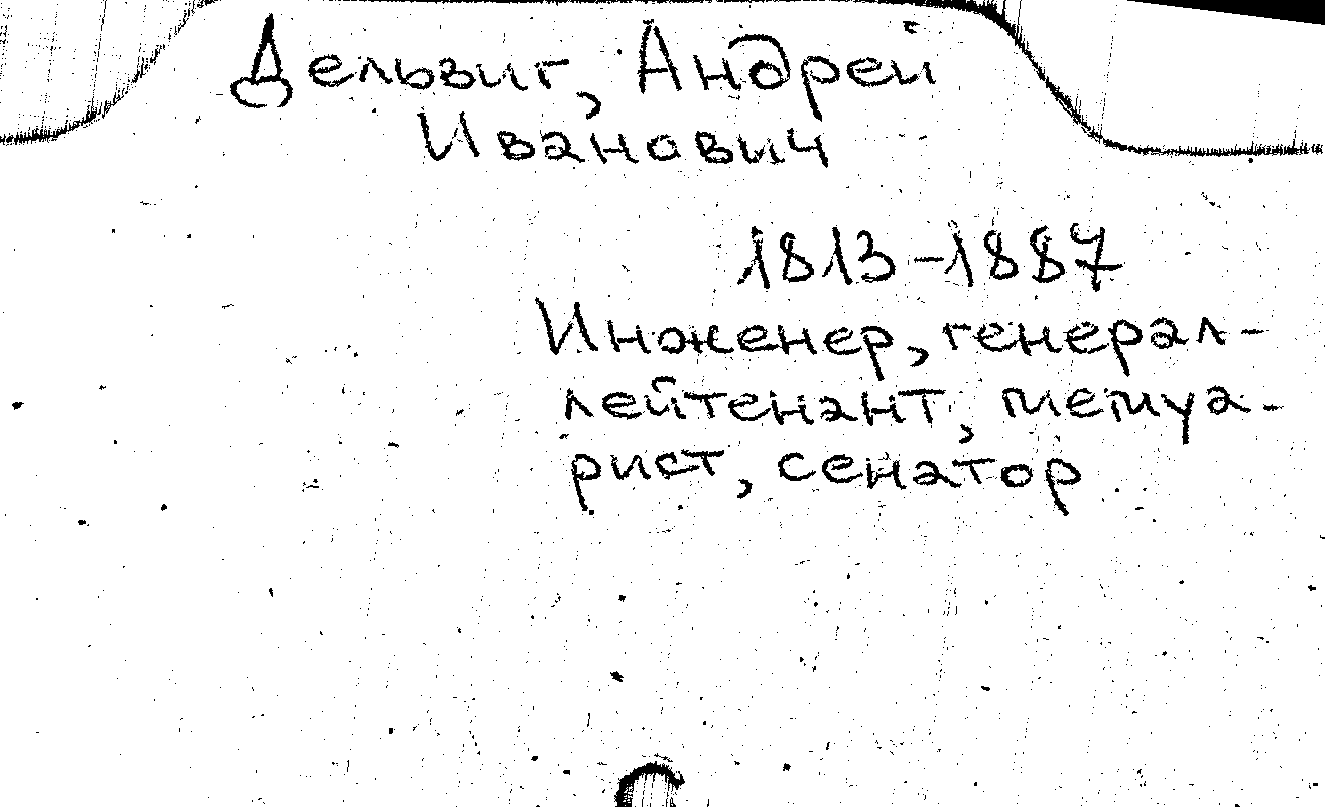 Дельвиг, Андрей
Иванович
1813-1887
Инженер, генерал-
лейтенант, мемуа-
рист, сенатор